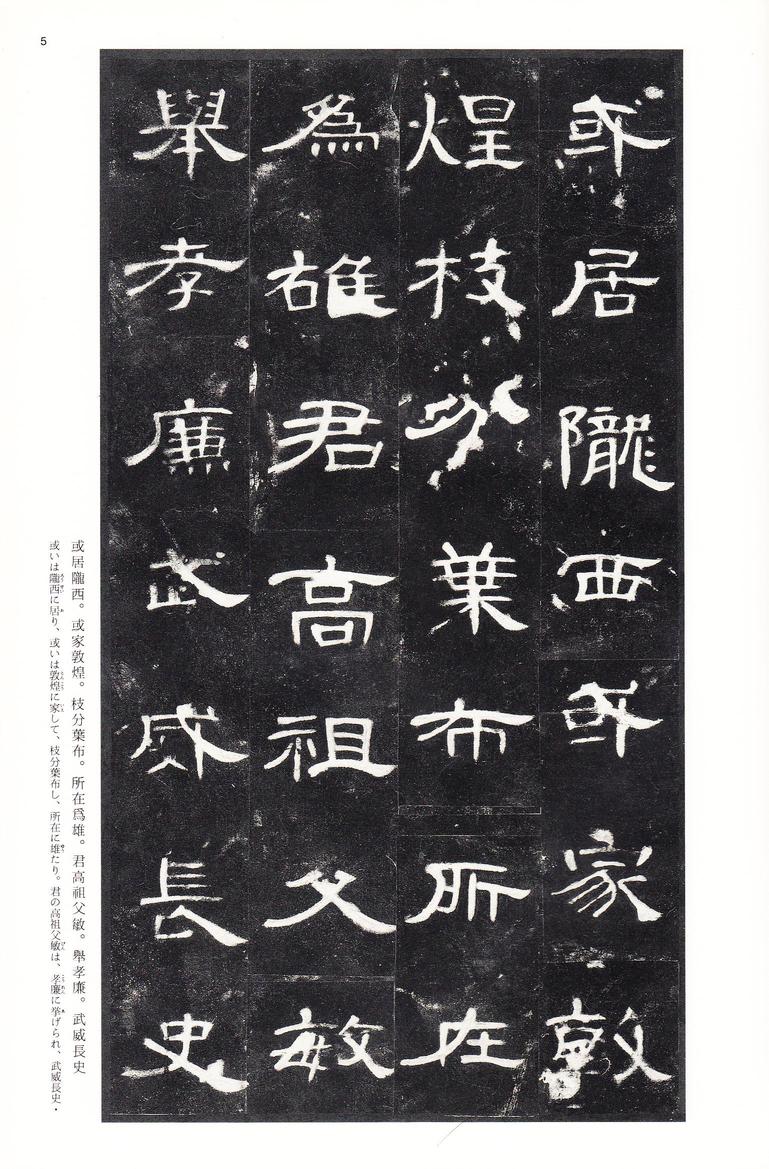 5
或居隴西或家敦
煌枝分葉布所在
為雄君高祖父敏
舉孝廉武威長史
或居隴西。或家敦煌。枝分葉布。所在爲雄。君高祖父敏。舉孝廉。武威長史
或いは隴西に居り、或いは敦煌に家して、枝分葉布し、所在に雄たり。君の高祖父敏は、孝廉に挙げられ、武威長史・